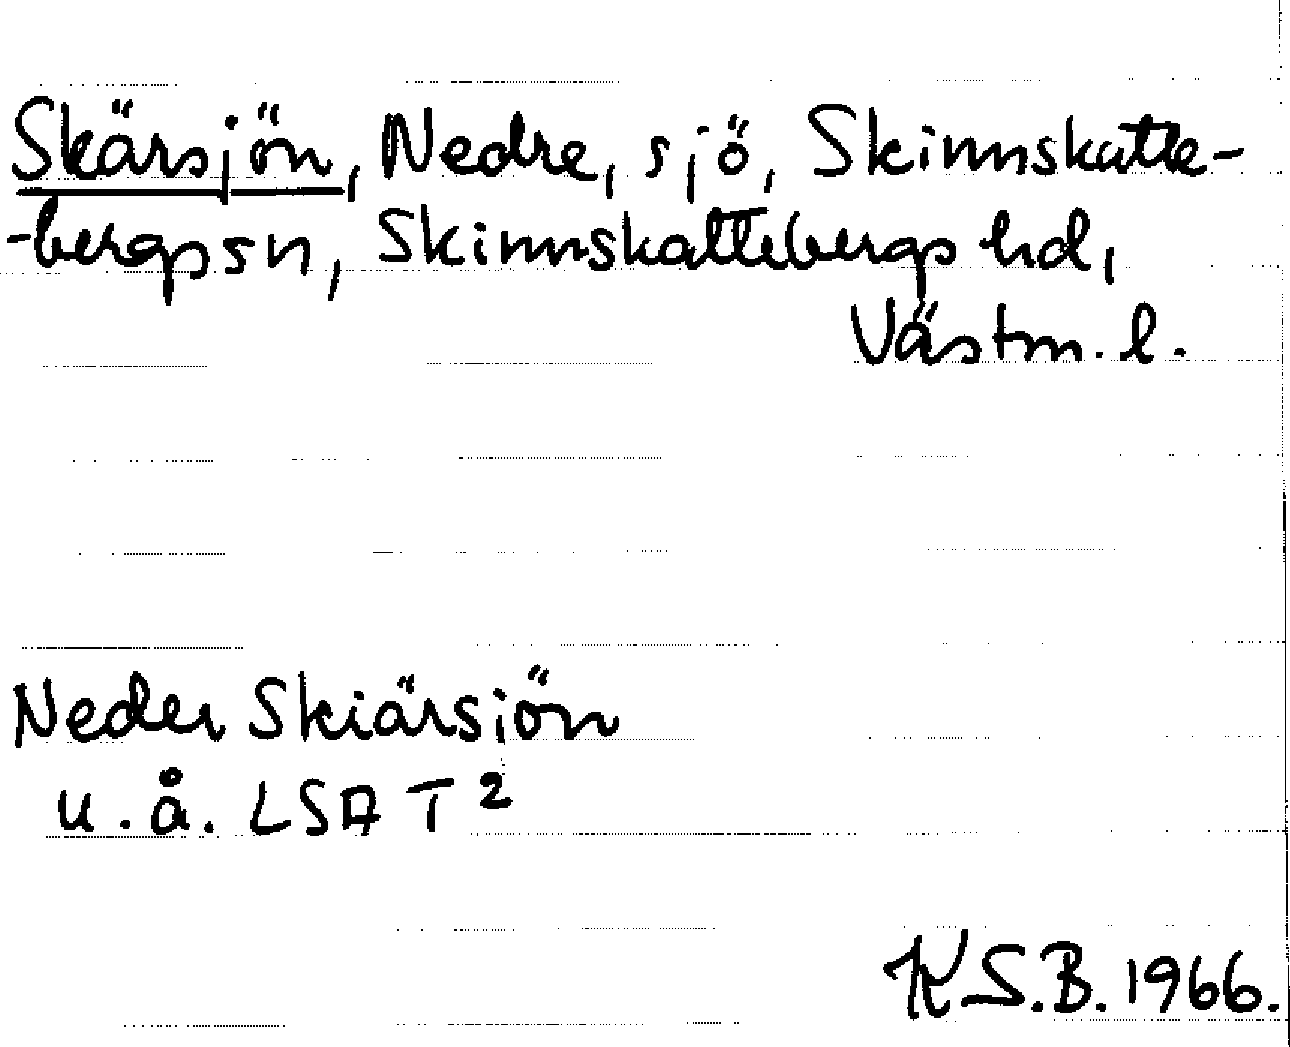 Skärsjön, Nedre, sjö, Skinnskatte-
-bergs sn, Skinnskattebergs hd,
Västm. l.
Neder Skiärsiön
u. å. LSA T 2
K S. B. 1966.